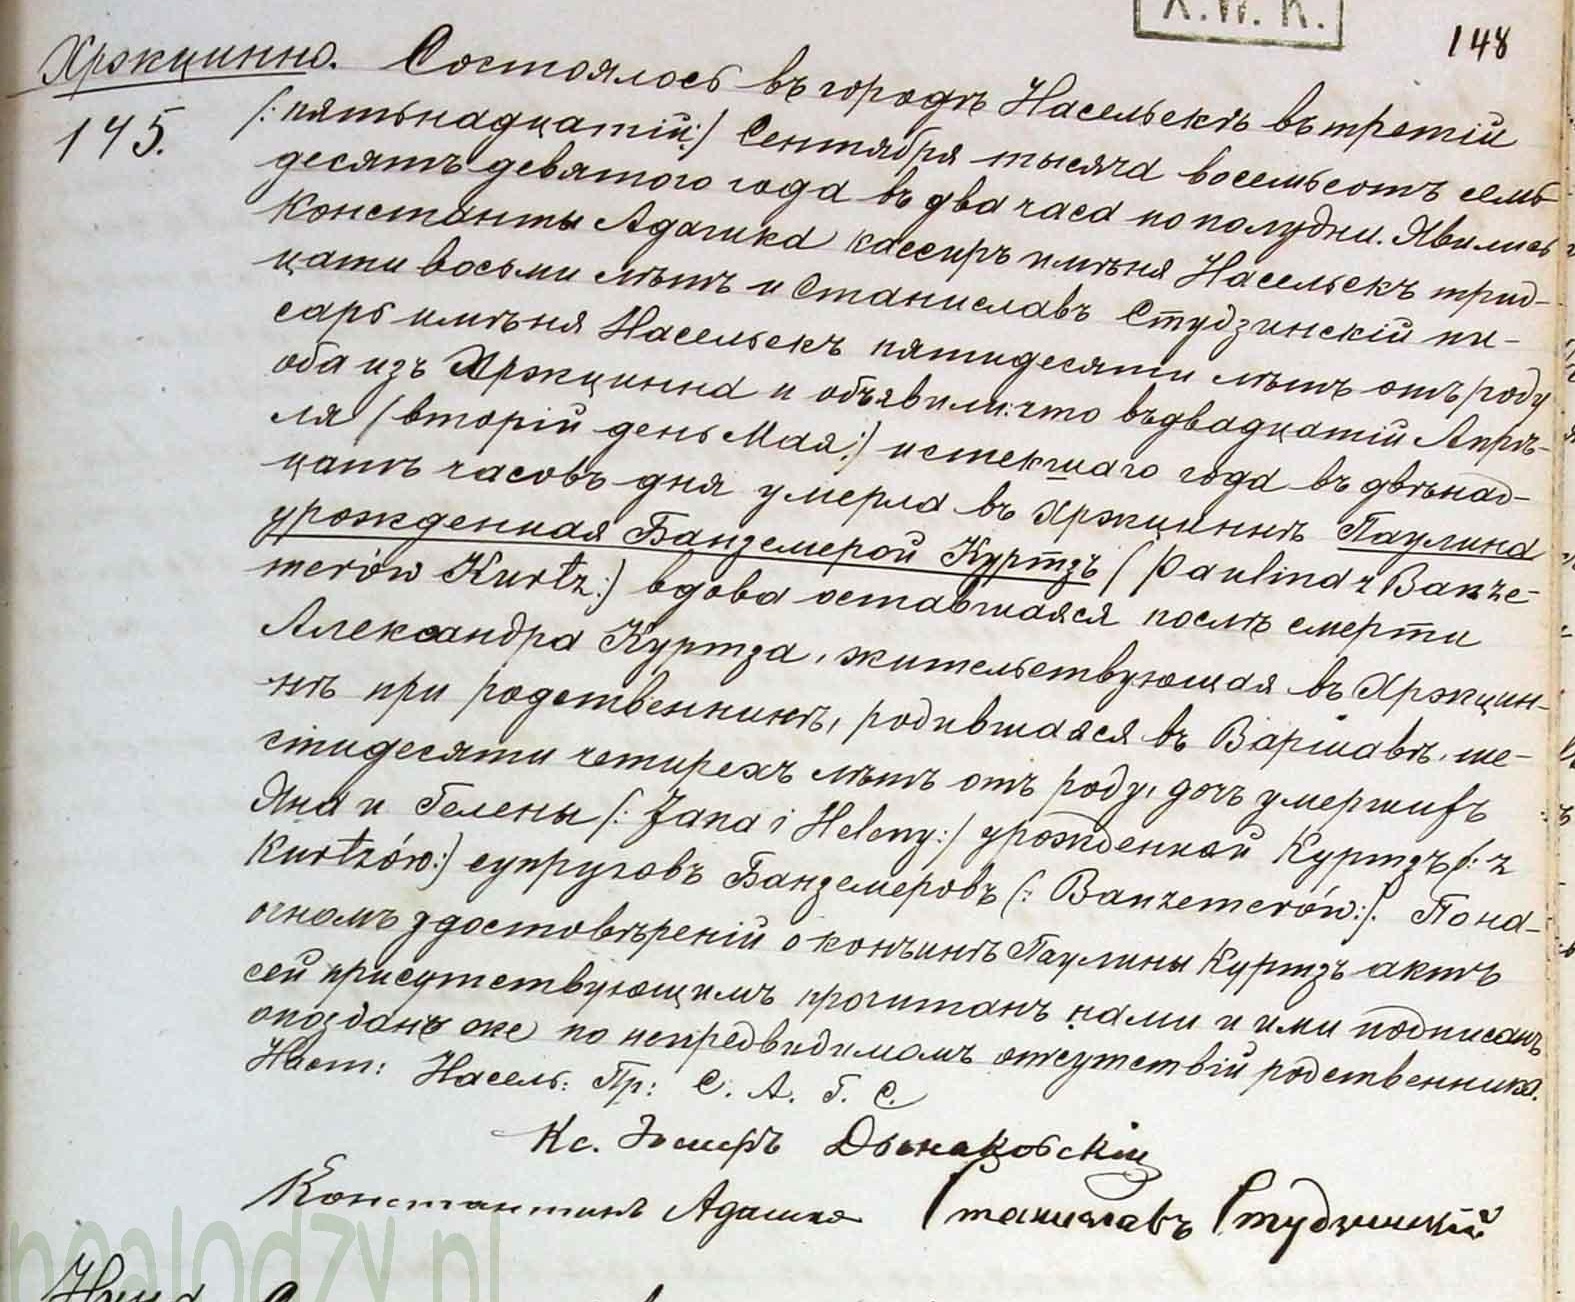 X. W. K.
148
Хрэкцинно. Состоялось въ городѣ Насельскѣ въ третій
145. (: пятьнадцатій:) Сентября тысяча восемьсотъ семь
десятъ девятого года въ два часа по полудни. Явились
Константы Адамика кассиръ имѣня Насельскъ трид-
цати восьми лѣтъ и Станиславъ Студзинскій пи-
сарь имѣня Насельскъ пятидесяти лѣтъ отъ роду
оба изъ Хрэкцинна и объявили: что въ двадцатій Апрѣ-
ля (вторій день Мая:) истекшаго года въ двѣнад-
цать часовъ дня умерла въ Хрэкциннѣ Паулина
урожденная Банземерой Куртзъ (Paulina z Banze-
merów Kurtz:) вдова оставшаяся послѣ смерти
Александра Куртза, жительствующая въ Хрэкцин-
нѣ при родственникѣ, родившаяся въ Варшавѣ, ше-
стидесяти четирехъ лѣтъ отъ роду, дочь умершихъ
Яна и Гелены (: Jana i Heleny:) урожденной Куртзъ (: z
Kurtzów:) супруговъ Банземеровъ (: Banzemerów:). По на-
очномъ удостовѣреній о кончинѣ Паулины Куртзъ актъ
сей присутствующимъ прочитанъ нами и ими подписанъ
опозданъ же по непредвидимомъ отсутствій родственника.
Наст: Насель: Пр: С. А. Г. С.
Кс.
Константинъ Адамика Станиславъ Студзинскій